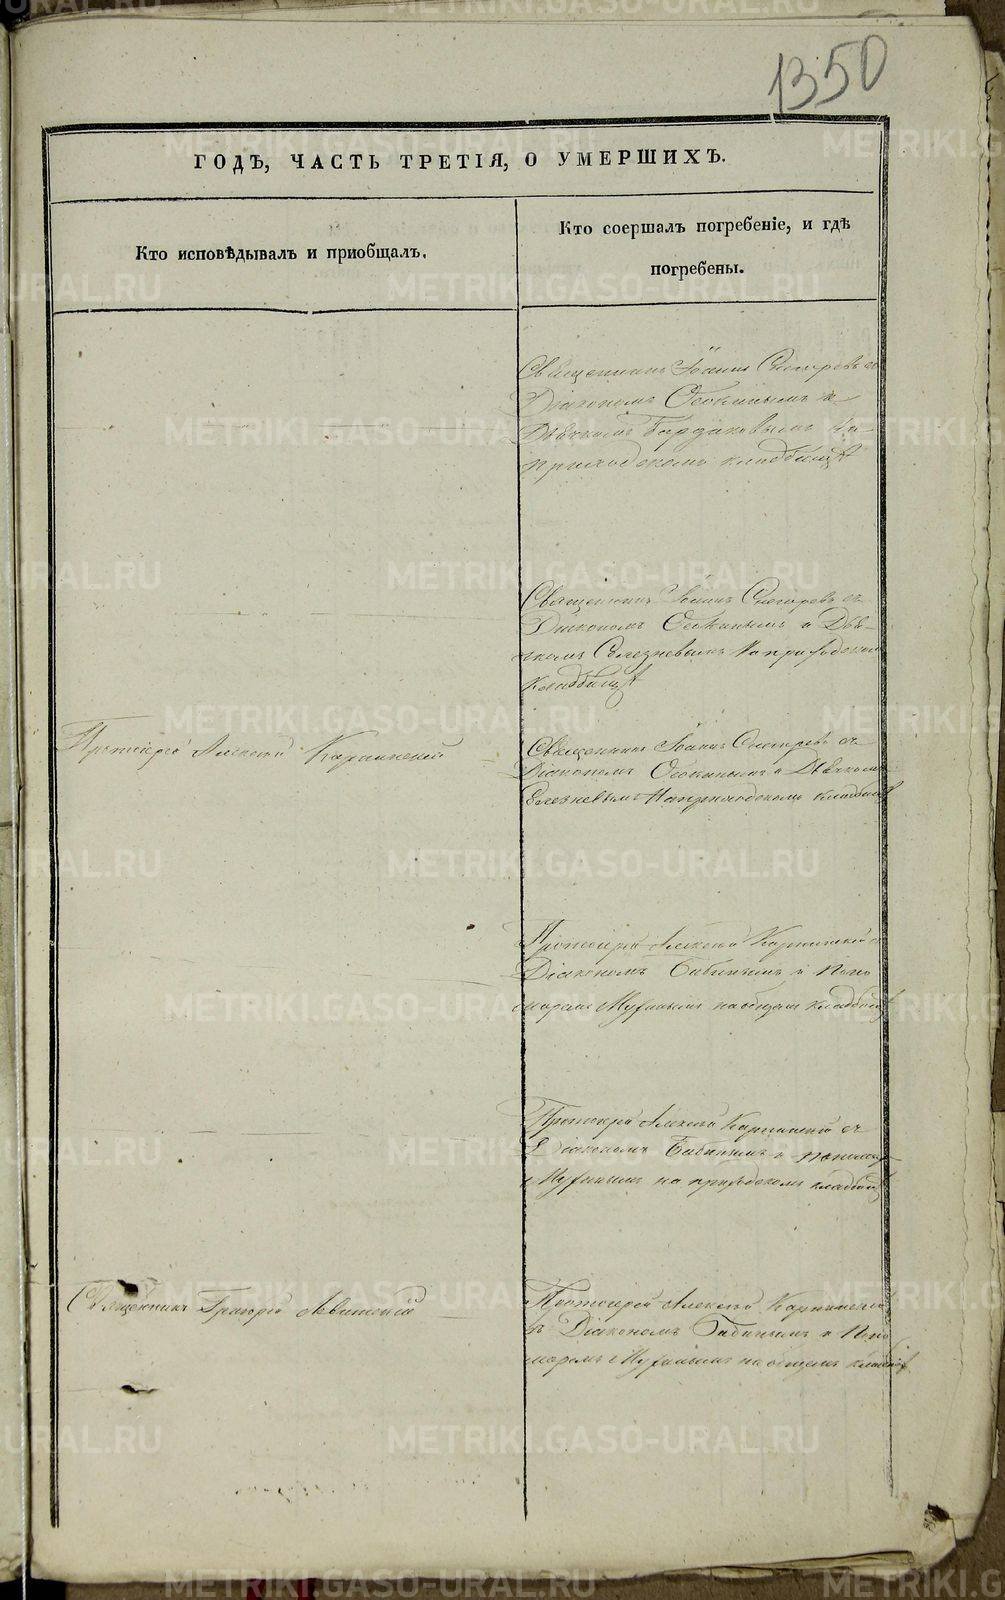 1350
ГОДЪ, ЧАСТЬ ТРЕТІЯ, О УМЕРШИХЪ.
Кто исповѣдывалъ и приобщалъ.
Кто соершалъ погребеніе, и гдѣ
погребены.
Священникъ Іоаннъ съ
Діакономъ Осокинымъ и
Дьячкомъ Бардаковымъ На
приходскомъ кладбищѣ
Священникъ Іоаннъ съ
Діакономъ Осокинымъ и Дья-
чкомъ Селезневымъ На приходскомъ
кладбищѣ
Протоіерей Алексѣй Карпинскій
Священникъ Іоаннъ съ
Діакономъ Осокинымъ и Дьячкомъ
Селезневымъ На приходскомъ кладбищѣ
Протоіерей Алексѣй Карпинскій съ
Діакономъ Бабинымъ и Поно
маремъ на общемъ кладбищѣ
Протоіерей Алексѣй Карпинскій съ
Діакономъ Бабинымъ и Пономар
на приходскомъ кладбищѣ
Священникъ Григорій Левитскій
Протоіерей Алексѣй Карпинскій
съ Діакономъ Бабинымъ и Поно
маремъ на общемъ кладбищѣ
METRIKI.GASO-URAL.RU